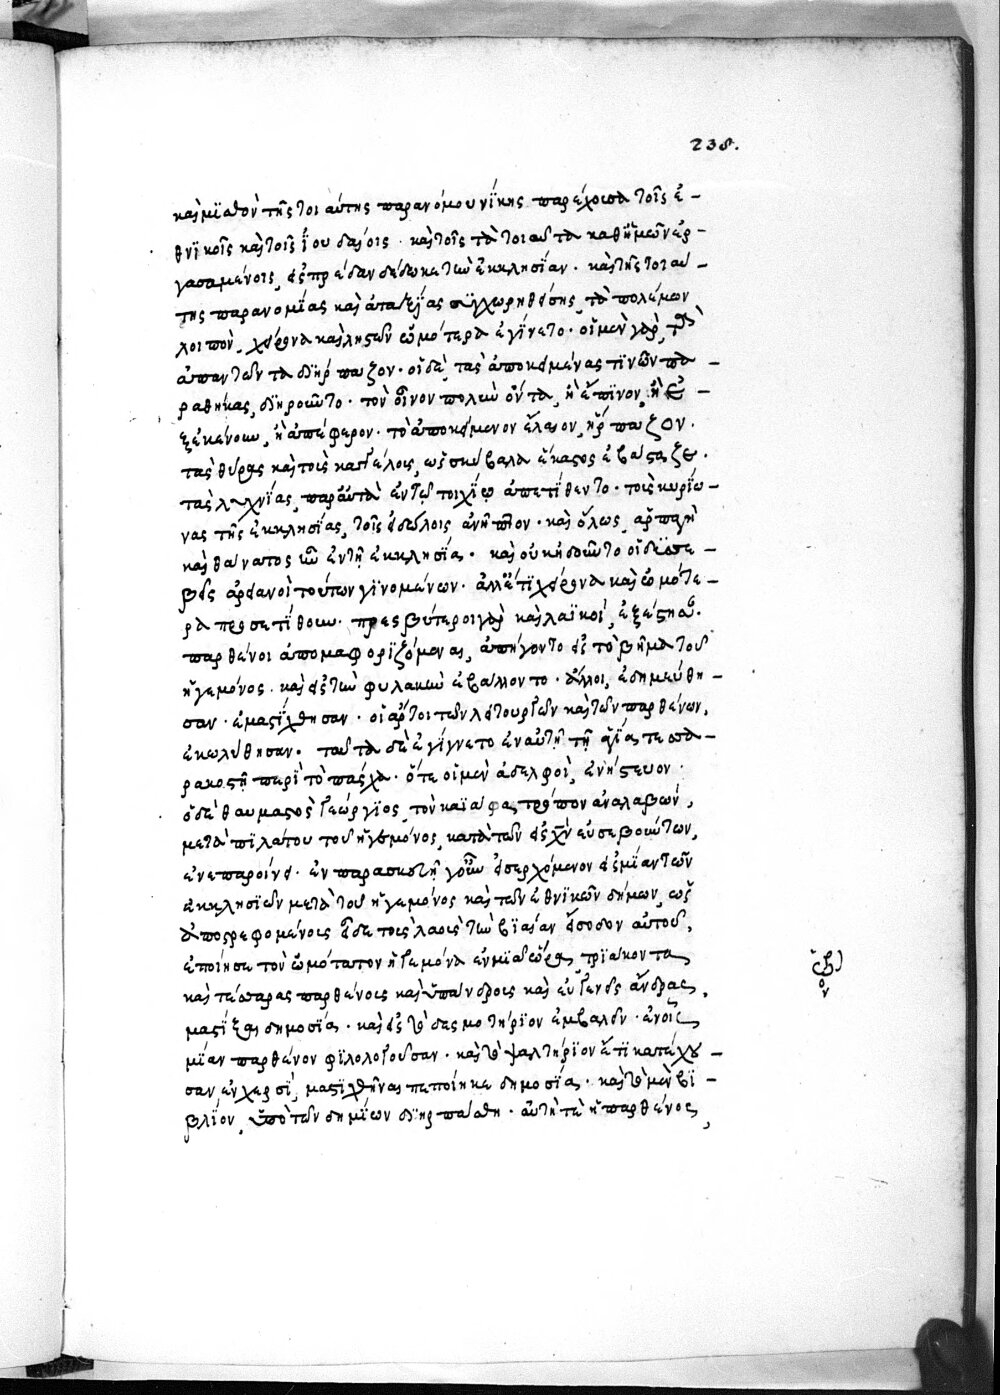 238.
καὶ μϊσθὸν τῆς τοιαύτης παρανόμου νίκης παρέχουσα τοῖς ἐ-
θνϊκοῖς καὶ τοῖς ἰουδαίοις· καὶ τοῖς τὰ τοιαῦτα καθ' ἡμῶν ἐρ-
γασαμένοις, εἰς πρέδαν δέδωκε τὴν ἐκκλησίαν· καὶ τῆς τοιαύ-
της παρανομίας καὶ ἀταξίας συγχωρηθείσης, τὰ πολέμων
λοιπὸν, χείρονα καὶ λῃστῶν ὠμότερα ἐγίνετο· οἱ μὲν γὰρ, τὰ
ἀπαντῶντα διήρπαζον· οἱ δὲ, τὰς ἀποκειμένας τινῶν πα-
ραθήκας, διηροῦντο· τὸν οἶνον πολὺν ὄντα, ἢ ἔπινον, ἢ
ἐξεκένουν, ἢ ἀπέφερον· τὸ ἀποκείμενον ἔλαιον, ἥρπαζον·
τὰς θύρας καὶ τοὺς καγκέλους, ὡς σκύβαλα ἕκαστος ἐβάσταζε·
τὰς λυχνίας, παραυτὰ ἐν τῷ τοιχίῳ ἀπετίθεντο· τοὺς κυρίω-
νας τῆς ἐκκλησίας, τοῖς εἰδώλοις ἀνῆπτον· καὶ ὅλως, ἁρπαγὴ
καὶ θάνατος ἦν ἐν τῇ ἐκκλησίᾳ· καὶ οὐκ ᾐδοῦντο οἱ δυσσε-
βεῖς ἀρειανοὶ τούτων γινομένων· ἀλλ' ἔτι χείρονα καὶ ὠμότε-
ρα προσετίθουν· πρεσβύτεροι γὰρ καὶ λαϊκοὶ, ἐξέσθησαν·
παρθένοι ἀπομαφοριζόμεναι, ἀπήγοντο εἰς τὸ βῆμα τοῦ
ἡγεμόνος· καὶ εἰς τὴν φυλακὴν ἐβάλλοντο· ἄλλοι, ἐδημεύθη-
σαν· ἐμαστίχθησαν· οἱ ἄρτοι τῶν λειτουργῶν καὶ τῶν παρθένων,
ἐκωλύθησαν· ταῦτα δὲ ἐγίγνετο ἐν αὐτῇ τῇ ἁγίᾳ τεσσα-
ρακοστῇ περὶ τὸ πάσχα· ὅτε οἱ μὲν ἀδελφοὶ, ἐνήστευον·
ὁ δὲ θαυμαστὸς γεώργϊος, τὸν καϊάφα τρόπον ἀναλαβὼν,
μετὰ πϊλάτου τοῦ ἡγεμόνος, κατὰ τῶν εἰς χν εὐσεβούντων,
ἐνεπαροίνει· ἐν παρασκευῇ γοῦν εἰσερχόμενον εἰς μίαν τῶν
ἐκκλησϊῶν μετὰ τοῦ ἡγεμόνος καὶ τῶν ἐθνϊκῶν δήμων, ὡς
ἀποστρεφομένους εἶδε τοὺς λαοὺς τὴν βϊαίαν εἴσοδον αὐτοῦ,
ἐποίησε τὸν ὠμότατον ἡγεμόνα ἐν μϊᾷ ὥρᾳ τριάκοντα
καὶ τέσσαρας παρθένους καὶ ὑπάνδρους καὶ εὐγενεῖς ἄνδρας,
μαστίξαι δημοσίᾳ· καὶ εἰς τὸ δεσμοτήριον ἐμβαλεῖν· ἐν οἷς
μίαν παρθένον φϊλολογοῦσαν· καὶ τὸ ψαλτήριον ἔτι κατέχου-
σαν ἐν χερσὶ, μαστιχθῆναι πεποίηκε δημοσίᾳ· καὶ τὸ μὲν βϊ-
βλίον, ὑπὸ τῶν δημίων διηρπάσθη· αὐτή τε ἡ παρθένος,